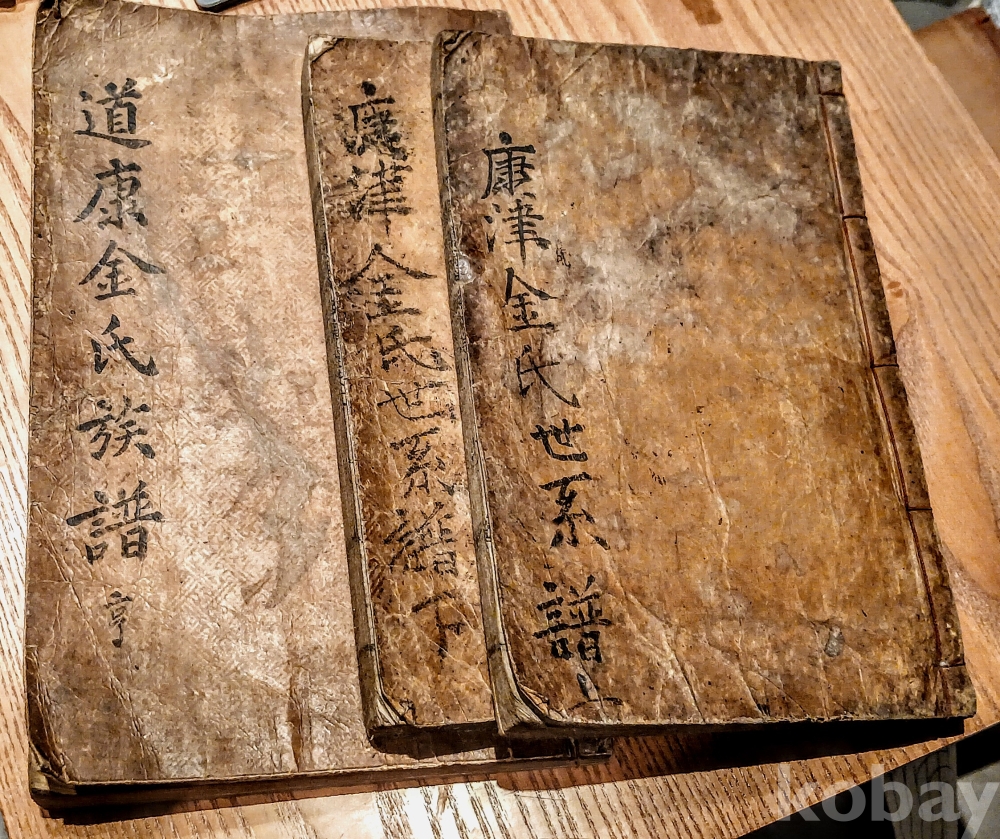 康津金氏世系譜上
康津金氏世系譜下
道康金氏族譜 亨
kobay